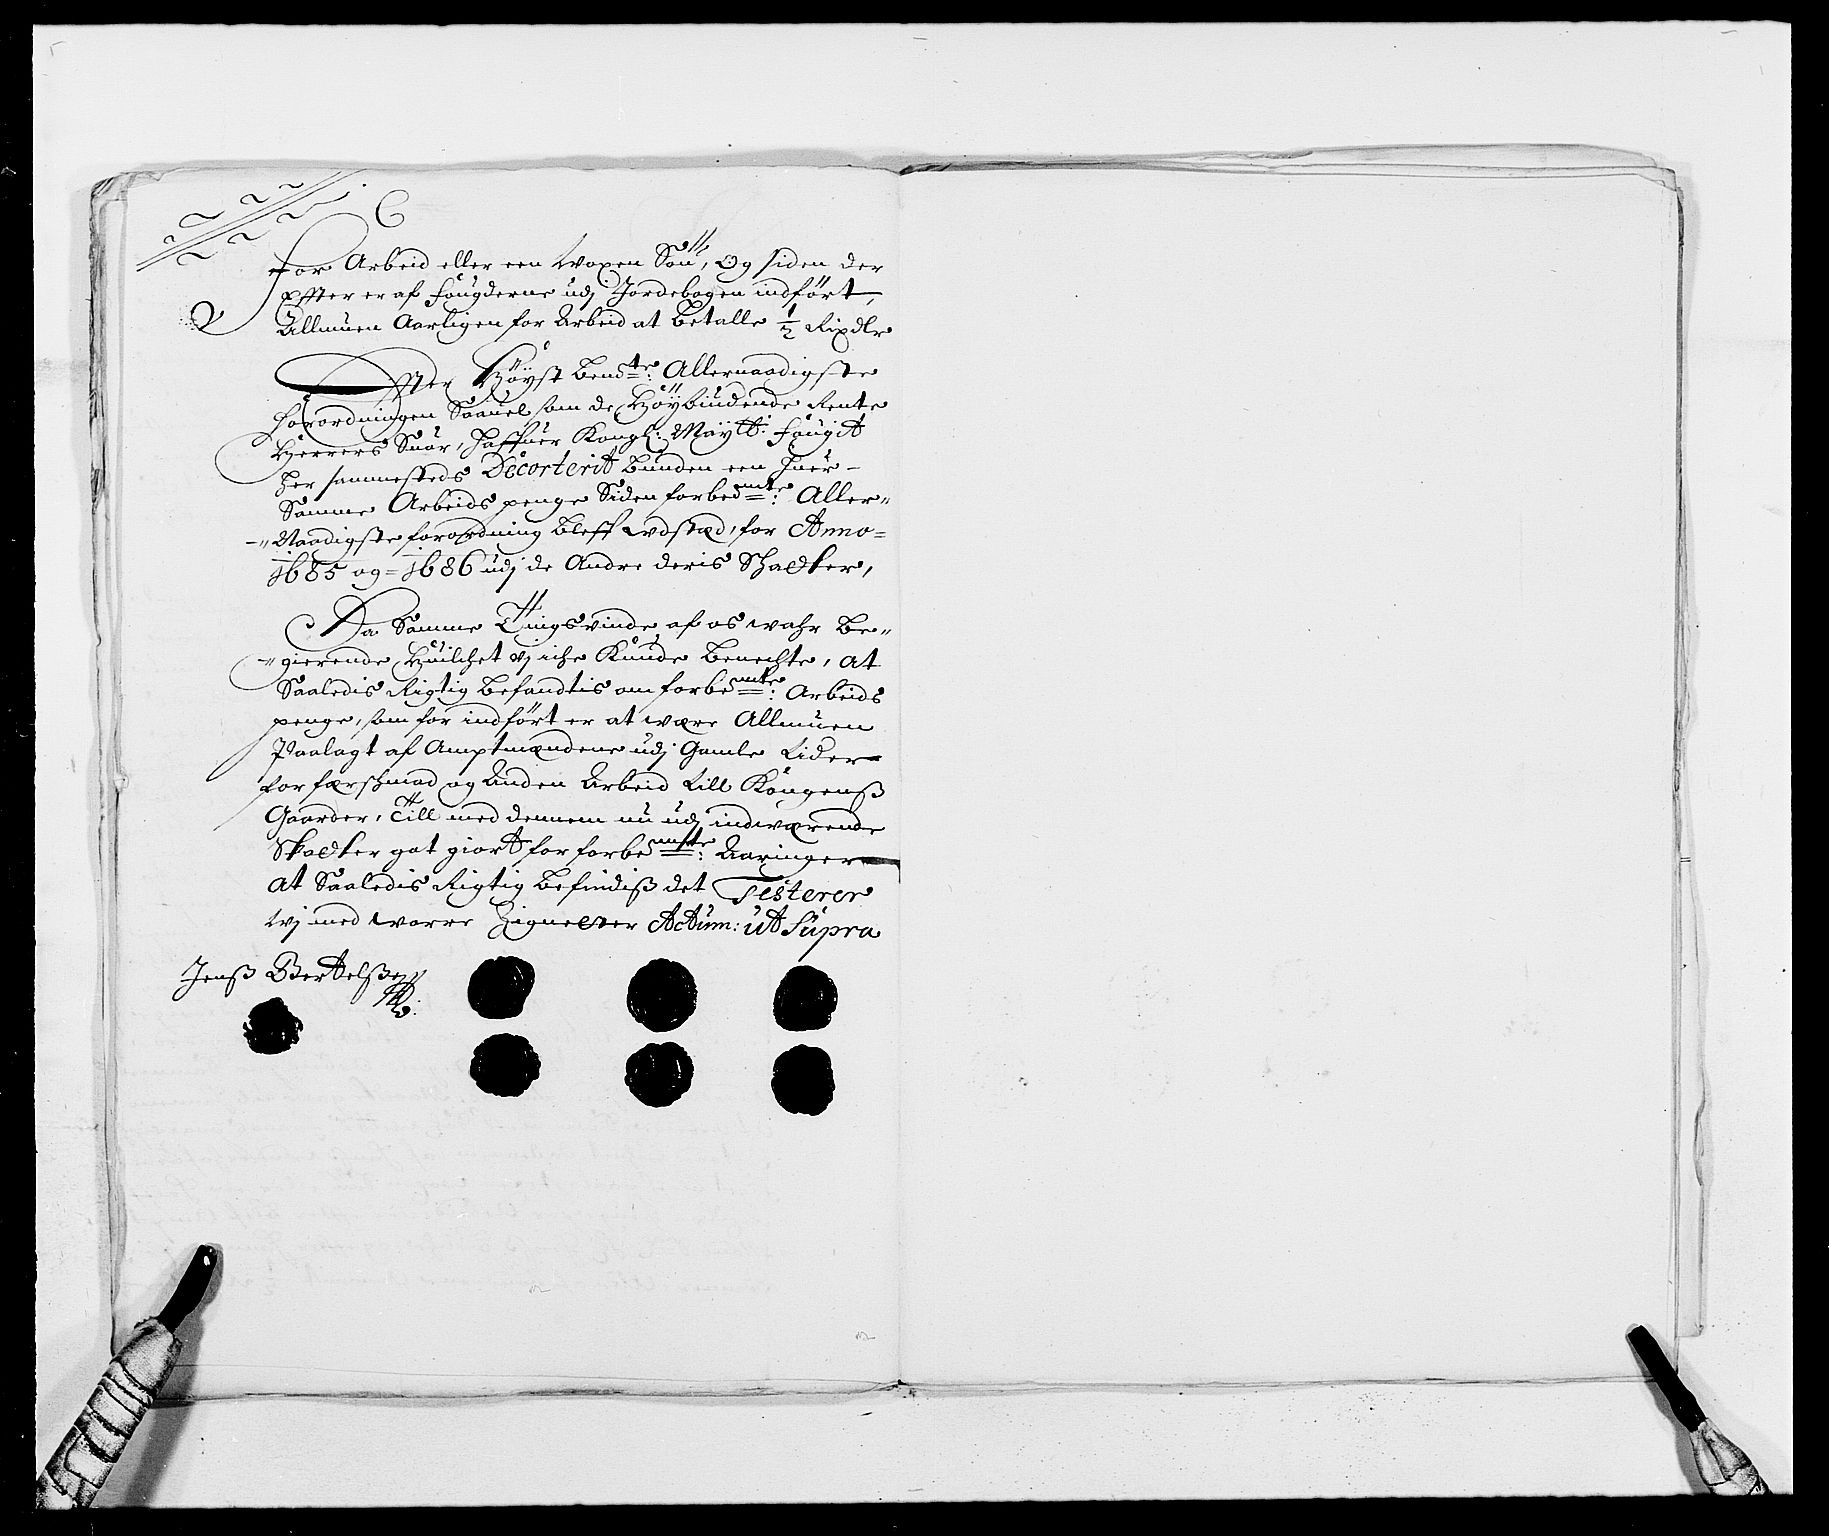 for Arbeid eller een woxen Søn, Og siden der
effter er af fougderne udj Jordebogen indført,
Allmuen Aarligen for Arbeid at betalle ½ Rixdlr
Effter Høyst bend<sup>te</sup>: Allernaadigste
forordningen Saauel som de Høybiudende Rente
Herrers Suar, haffuer Kongl: Maytt: fougit
her sammesteds Decorterit bunden een huer
Samme Arbeids penge Siden forbe<sup>mte</sup>: Aller-
-Naadigste forordning bleff udstæd, for Anno
1685 og 1686 udj de Andre deris Schatter,
Da Samme Tingsvinde af os wahr be-
-gierende Huilchet vj iche Kunde benechte, at
Saaledis Rigtig befandtis om forbe<sup>mte</sup>: Arbeids
penge, som for indført er at wære Allmuen
Paalagt af Amptmændene udj Gamle tider
for færschmad og Anden Arbeid till Kongenß
Gaarder, till med dennem nu udj indwærende
Skatter got giort for forbe<sup>mste</sup>: Aaringer
At Saaledis Rigtig befindiß det Testerer
wj med worre Zigneter Actum: ut Supra
Jenß Bertelßen